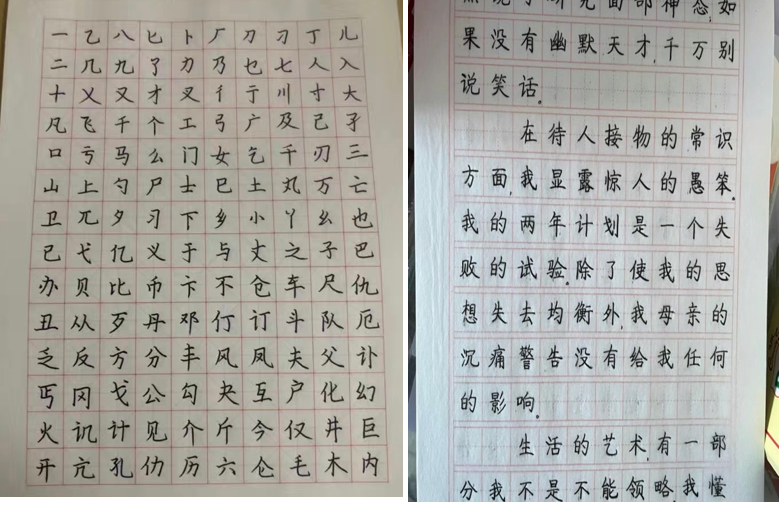 一乙八匕卜厂刀刁丁儿
二几九了力乃乜七人入
十乂又才叉彳亍川寸大
凡飞千个工弓广及己孑
口亏马么门女乞千刃三
山上勺尸士巳土丸万亡
卫兀夕习下乡小丫幺也
已弋亿义于与丈之子巴
办贝比币卞不仓车尺仇
丑从歹丹邓仃订斗队厄
乏反方分丰风凤夫父讣
丐冈戈公勾夬互户化幻
火讥计见介斤今仅井巨
开亢孔仂历六仑毛木内
研究面部神态,如
果没有幽默天才,千万别
说笑话。
在待人接物的常识
方面,我显露惊人的愚笨。
我的两年计划是一个失
败的试验。除了使我的思
想失去均衡外,我母亲的
沉痛警告没有给我任何
的影响。
生活的艺术,有一部
分我不是不能领略。我懂